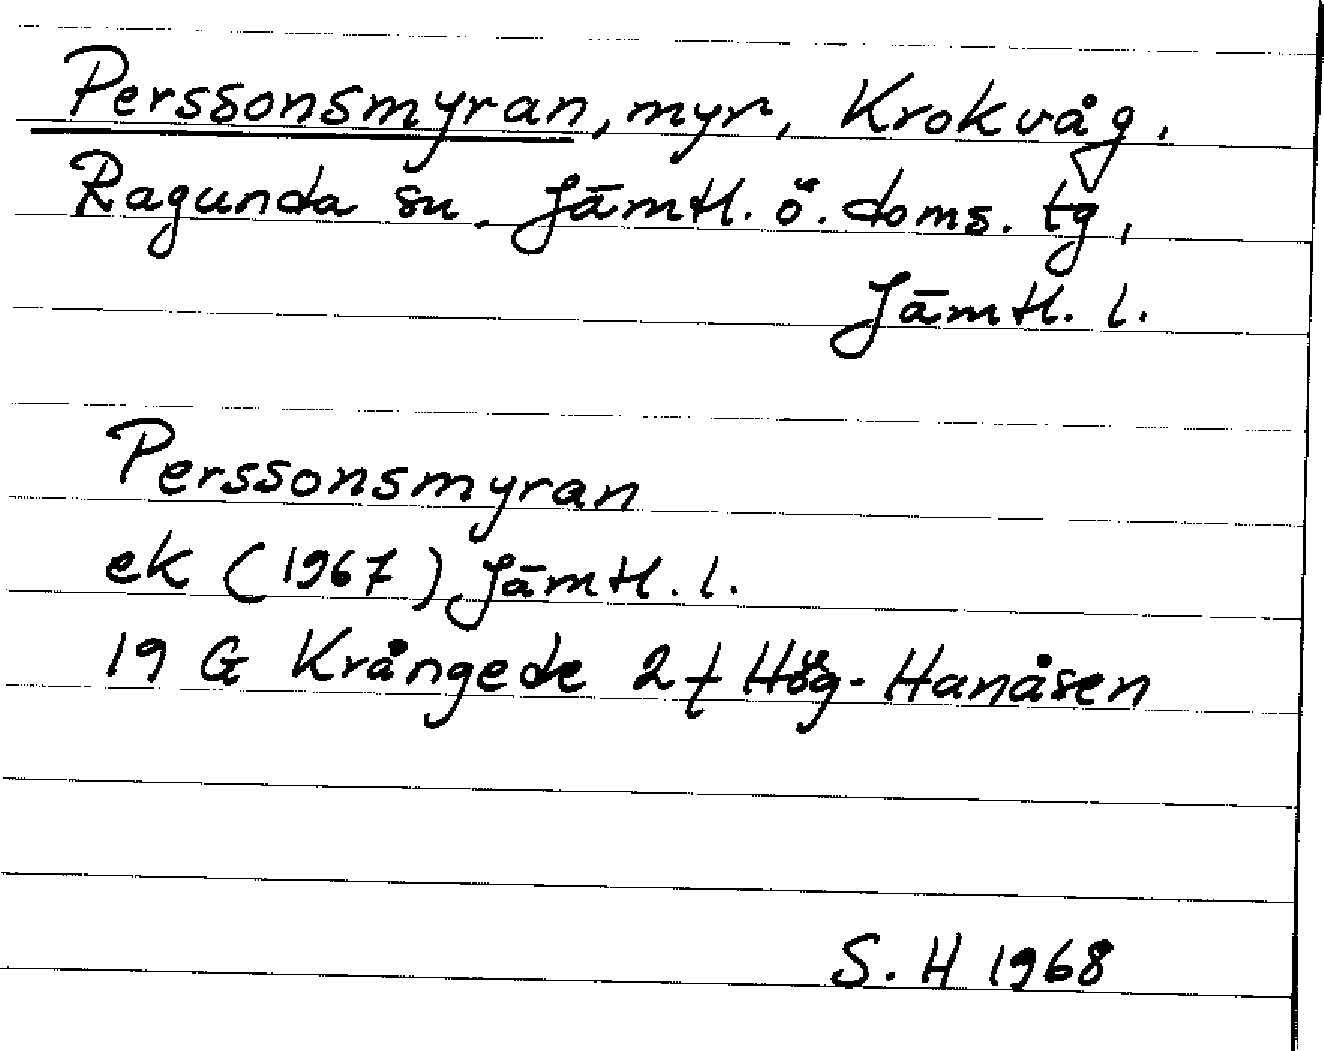 Perssonsmyran, myr, Krokvåg,
Ragunda sn. Jämtl. ö. doms. tg,
Jämtl. l.
Perssonsmyran
ek (1967) Jämtl. l.
19 G Krångede 2 f Hög-Hanåsen
S. H 1968